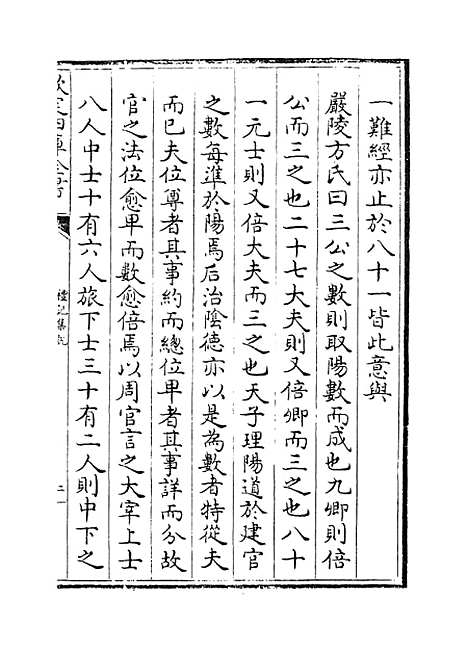 一難經亦止於八十一皆此意與
嚴陵方氏曰三公之數則取陽數而成也九卿則倍
公而三之也二十七大夫則又倍卿而三之也八十
一元士則又倍大夫而三之也天子理陽道於建官
之數每準於陽焉后治陰德亦以是為數者特從夫
而已夫位尊者其事約而總位卑者其事詳而分故
官之法位愈卑而數愈倍焉以周官言之大宰上士
八人中士十有六人旅下士三十有二人則中下之
欽定四庫全書
禮記集説